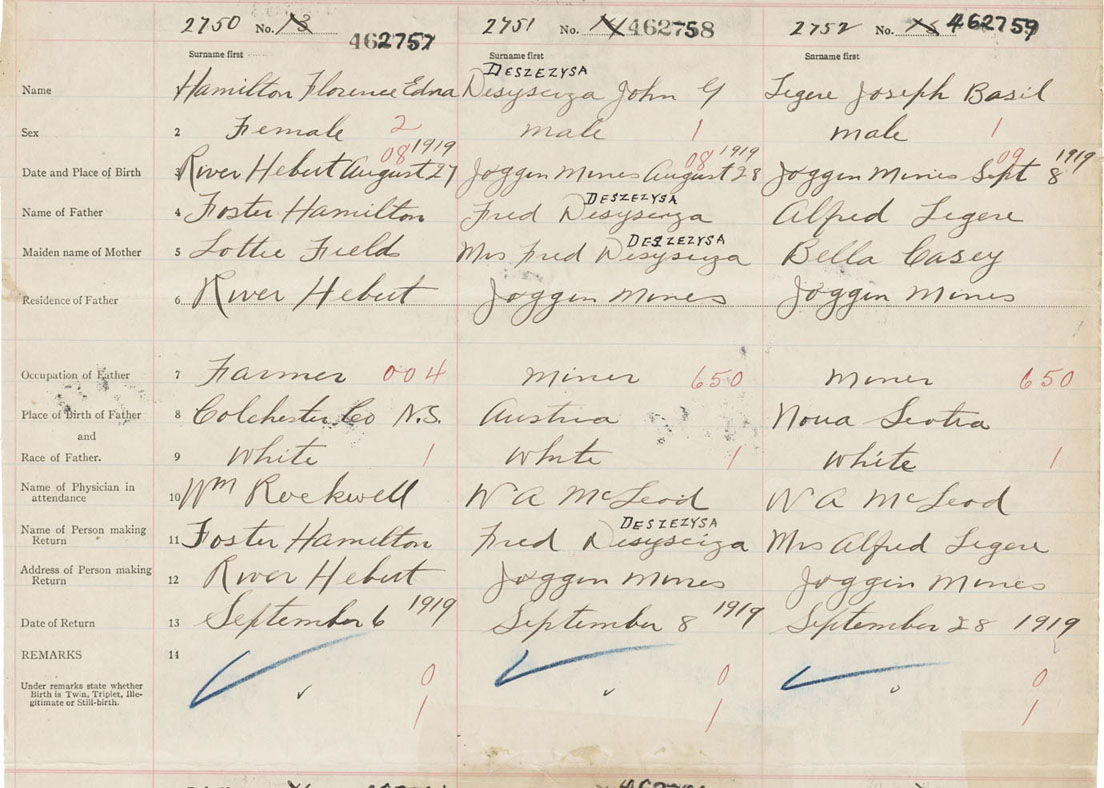 2750 No. 13 462757 2751 No. 14 462758 2752 No. 15 462759
Surname first Surname first Surname first
DESZEZYSA
Name Hamilton Florence Edna Desysciza John G Legere Joseph Basil
Sex 2 Female 2 male 1 male 1
08 1919 08 1919 09 1919
Date and Place of Birth 3 River Hebert August 27 Joggin Mines August 28 Joggin Mines Sept 8
DESZEZYSA
Name of Father 4 Foster Hamilton Fred Desysciza Alfred Legere
DESZEZYSA
Maiden name of Mother 5 Lottie Fields Mrs Fred Desysciza Bella Casey
Residence of Father 6 River Hebert Joggin Mines Joggin Mines
Occupation of Father 7 Farmer 004 Miner 650 Miner 650
Place of Birth of Father 8 Colchester Co N.S. Austria Nova Scotia
and
Race of Father. 9 White 1 White 1 White 1
Name of Physician in
attendance 10 Wm Rockwell W A McLeod W A McLeod
DESZEZYSA
Name of Person making
Return 11 Foster Hamilton Fred Desysciza Mrs Alfred Legere
Address of Person making
Return 12 River Hebert Joggin Mines Joggin Mines
Date of Return 13 September 6 1919 September 8 1919 September 28 1919
REMARKS 14
0 0 0
Under remarks state whether
Birth is Twin, Triplet, Ille-
gitimate or Still-birth.
1 1 1